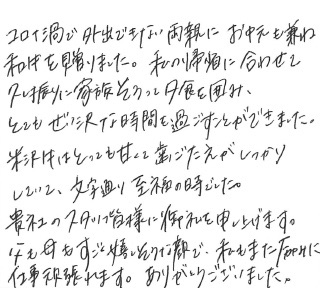 コロナ渦で外出できない両親に お中元も兼ね
和牛を贈りました。私の帰省に合わせて
久し振りに家族そろって夕食を囲み、
とてもぜい沢な時間を過ごすことができました。
米沢牛はとっても甘くて歯ごたえがしっかり
していて、文字通り至福の時でした。
貴社のスタッフ皆様に御礼を申し上げます。
父も母もすごく嬉しそうな顔で、私もまた
仕事頑張れます。ありがとうございました。